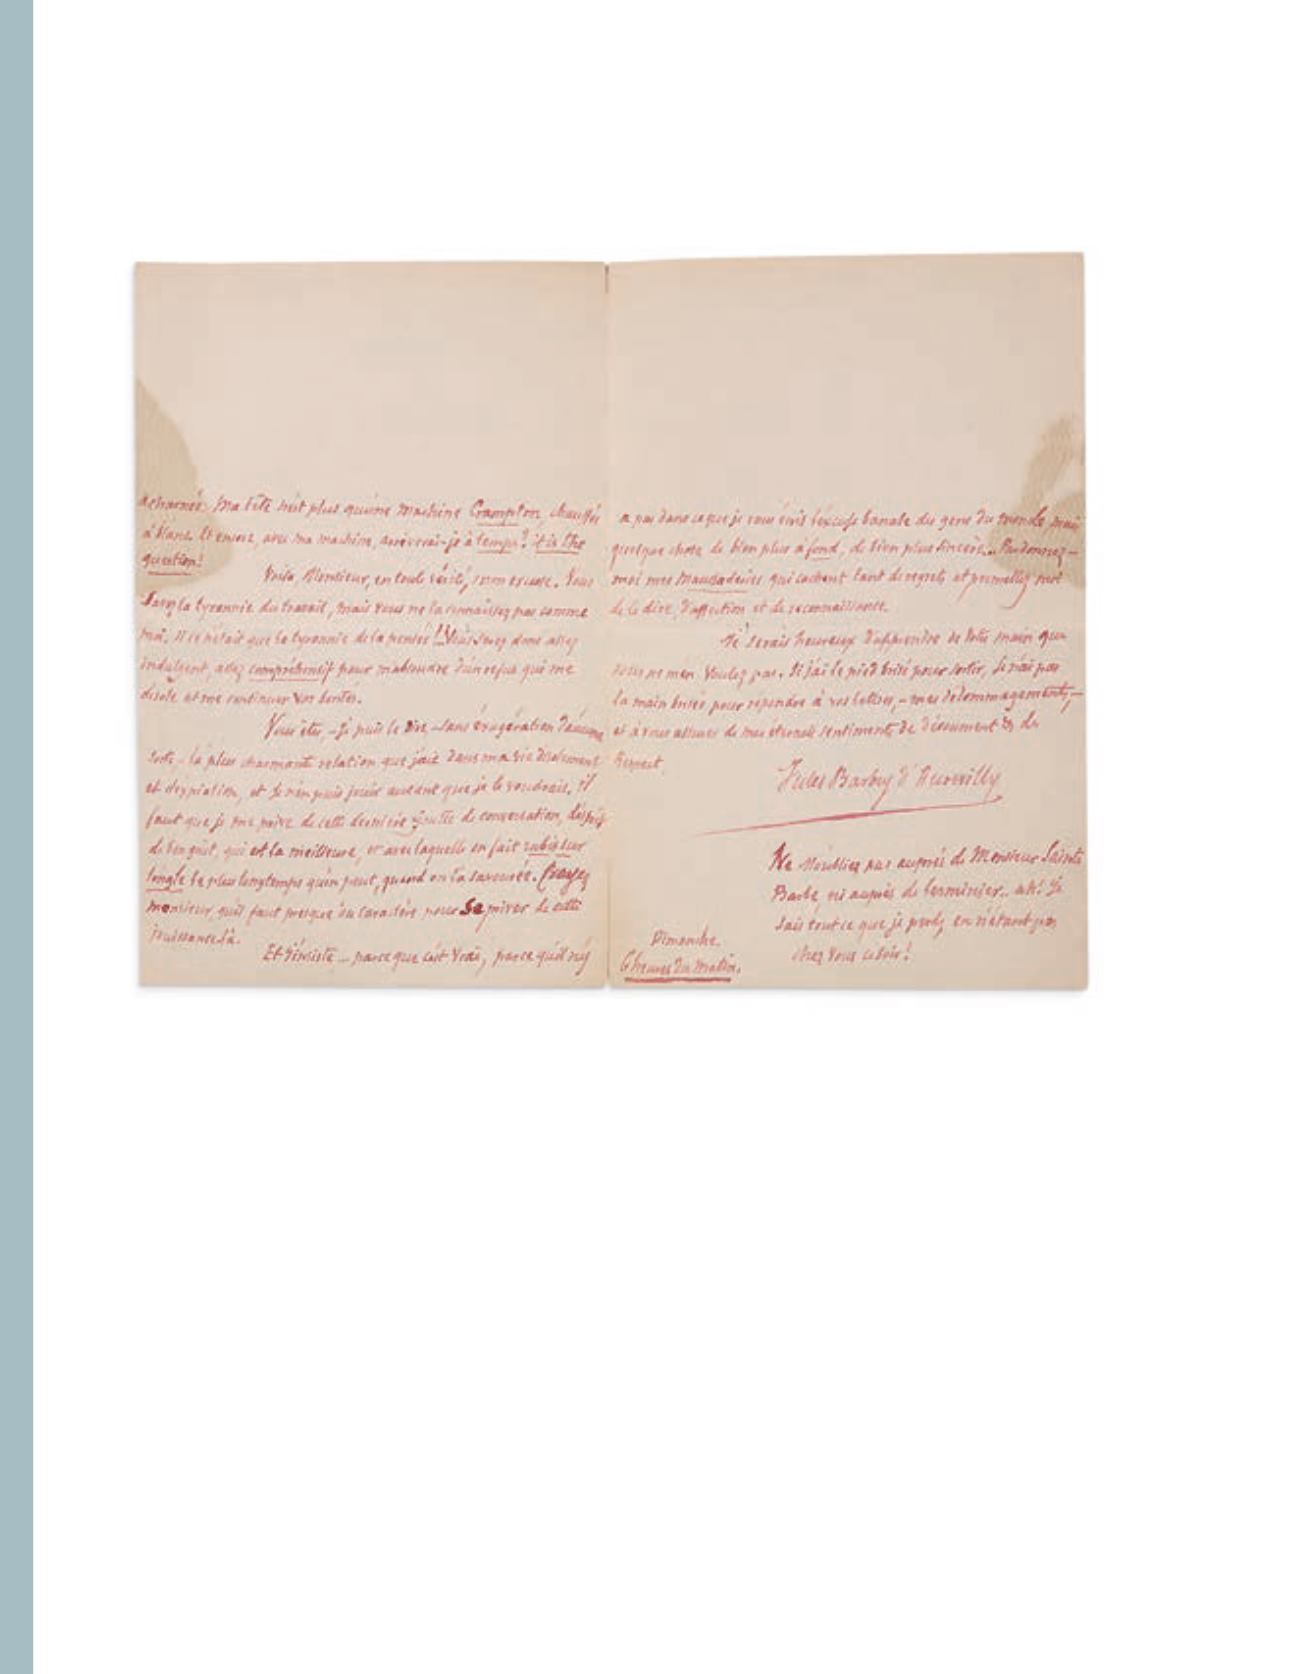 acharnée. Ma tête n'est plus qu'une machine Crampton, chauffée
à blanc. Et encore, avec ma machine, arriverai-je à temps? it is the
question!
Voilà, Monsieur, en toute vérité, mon excuse. Vous
savez la tyrannie du travail, mais vous ne la connaissez pas comme
moi. Si ce n'était que la tyrannie de la pensée! Vous serez donc assez
indulgent, assez compréhensif pour m'absoudre d'un refus qui me
désole et me continuer vos bontés.
Vous êtes, – je puis le dire, – sans exagération d'aucune
sorte – la plus charmante relation que j'aie dans ma vie d'isolement
et d'expiation, et je n'en puis jouir autant que je le voudrais. Il
faut que je me prive de cette dernière goutte de conversation,
de bon goût, qui est la meilleure, et avec laquelle on fait rubis sur
l'ongle le plus longtemps qu'on peut, quand on l'a savourée. Croyez
monsieur, qu'il faut presque du caractère pour se priver de cette
jouissance là.
Et j'insiste... parce que c'est vrai, parce qu'il n'y
a pas dans ce que je vous écris l'excuse banale des gens du monde, mais
quelque chose de bien plus à fond, de bien plus sincère... Pardonnez-
moi mes maussaderies qui cachent tant de regrets et permettez moi
de le dire, d'affection et de reconnaissance.
Je serais heureux d'apprendre de votre main que
vous ne m'en voulez pas. Si j'ai le pied brisé pour sortir, je n'ai pas
la main brisée pour répondre à vos lettres, – mes dédommagements, –
et à vous assurer de mes éternels sentiments de dévouement & de
Respect.
Jules Barbey d'Aurevilly
Ne m'oubliez pas auprès de Monsieur Sainte
Barbe, ni auprès de Lerminier.. ah! Je
sais tout ce que je perds en n'étant pas
chez vous ce soir!
Dimanche.
6 heures du matin.